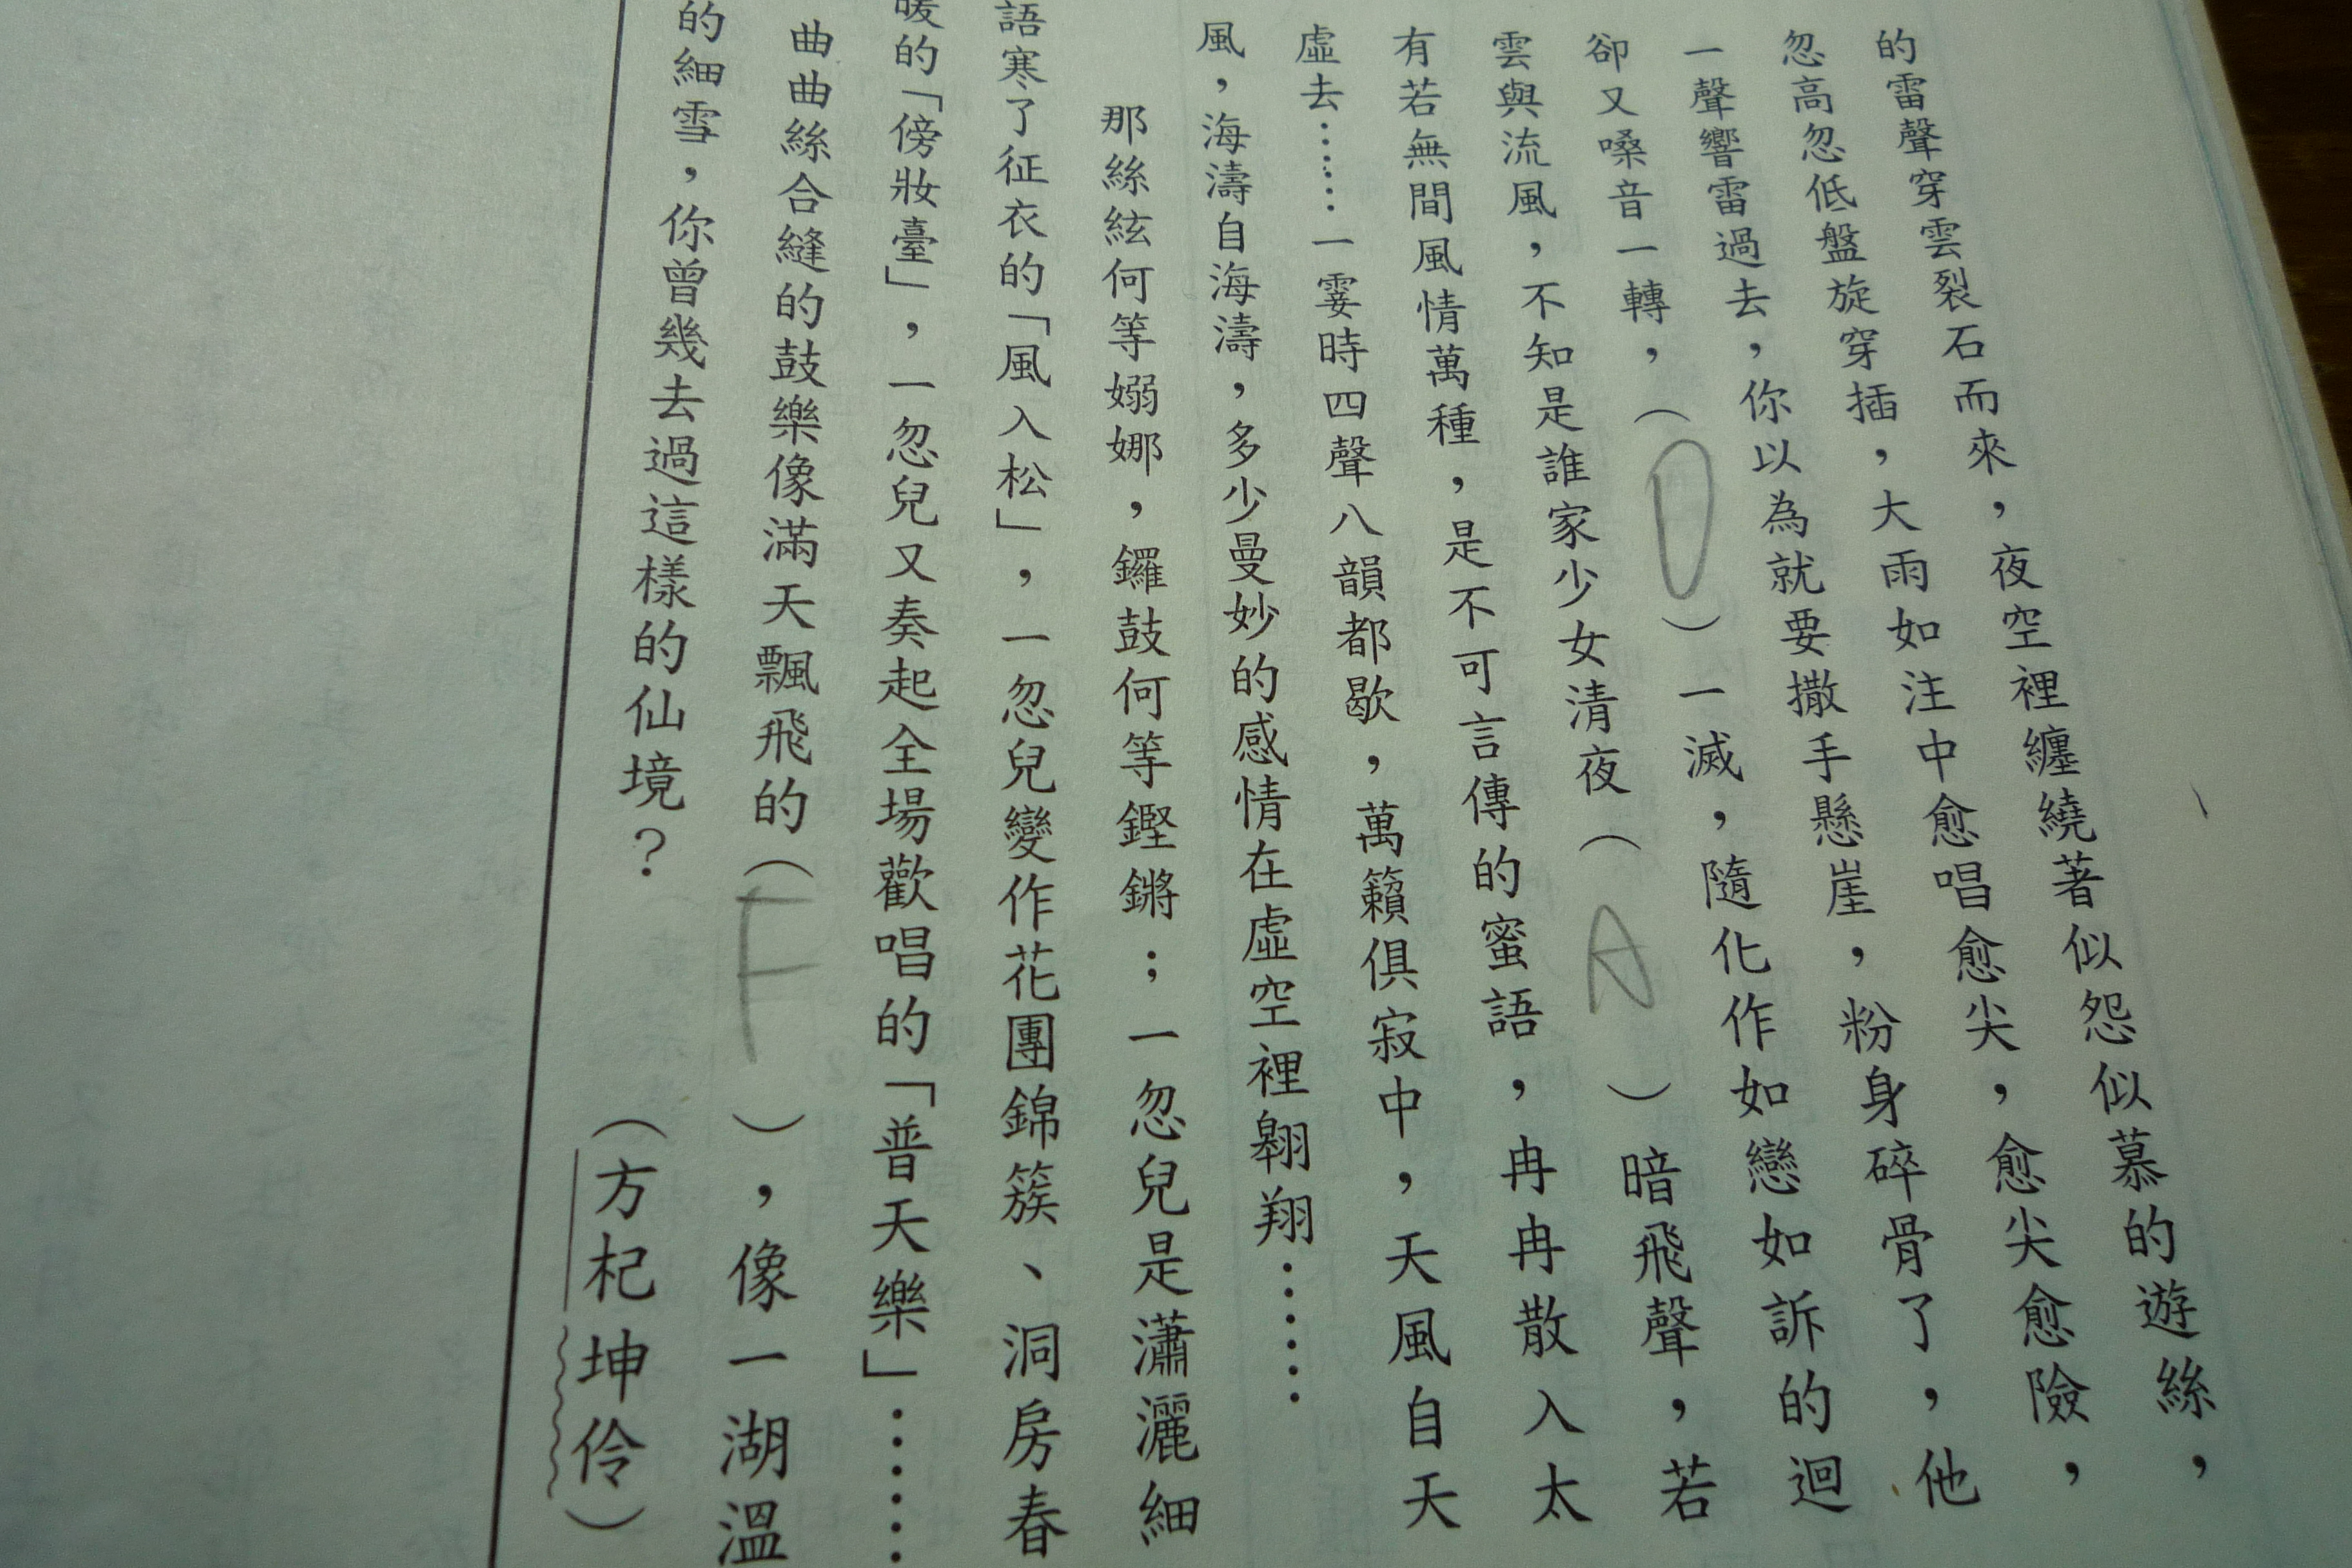 的雷聲穿雲裂石而來，夜空裡纏繞著似怨似慕的遊絲，
忽高忽低盤旋穿插，大雨如注中愈唱愈尖，愈尖愈險，
一聲響雷過去，你以為就要撒手懸崖，粉身碎骨了，他
卻又嗓音一轉，（D）一滅，隨化作如戀如訴的迴
雲與流風，不知是誰家少女清夜（A）暗飛聲，若
有若無間風情萬種，是不可言傳的蜜語，冉冉散入太
虛去……一霎時四聲八韻都歇，萬籟俱寂中，天風自天
風，海濤自海濤，多少曼妙的感情在虛空裡翱翔……
那絲絃何等嫋娜，鑼鼓何等鏗鏘；一忽兒是瀟灑細
語寒了征衣的「風入松」，一忽兒變作花團錦簇、洞房春
暖的「傍妝臺」，一忽兒又奏起全場歡唱的「普天樂」……
曲曲絲合縫的鼓樂像滿天飄飛的（F），像一湖溫
的細雪，你曾幾去過這樣的仙境？（方杞坤伶）